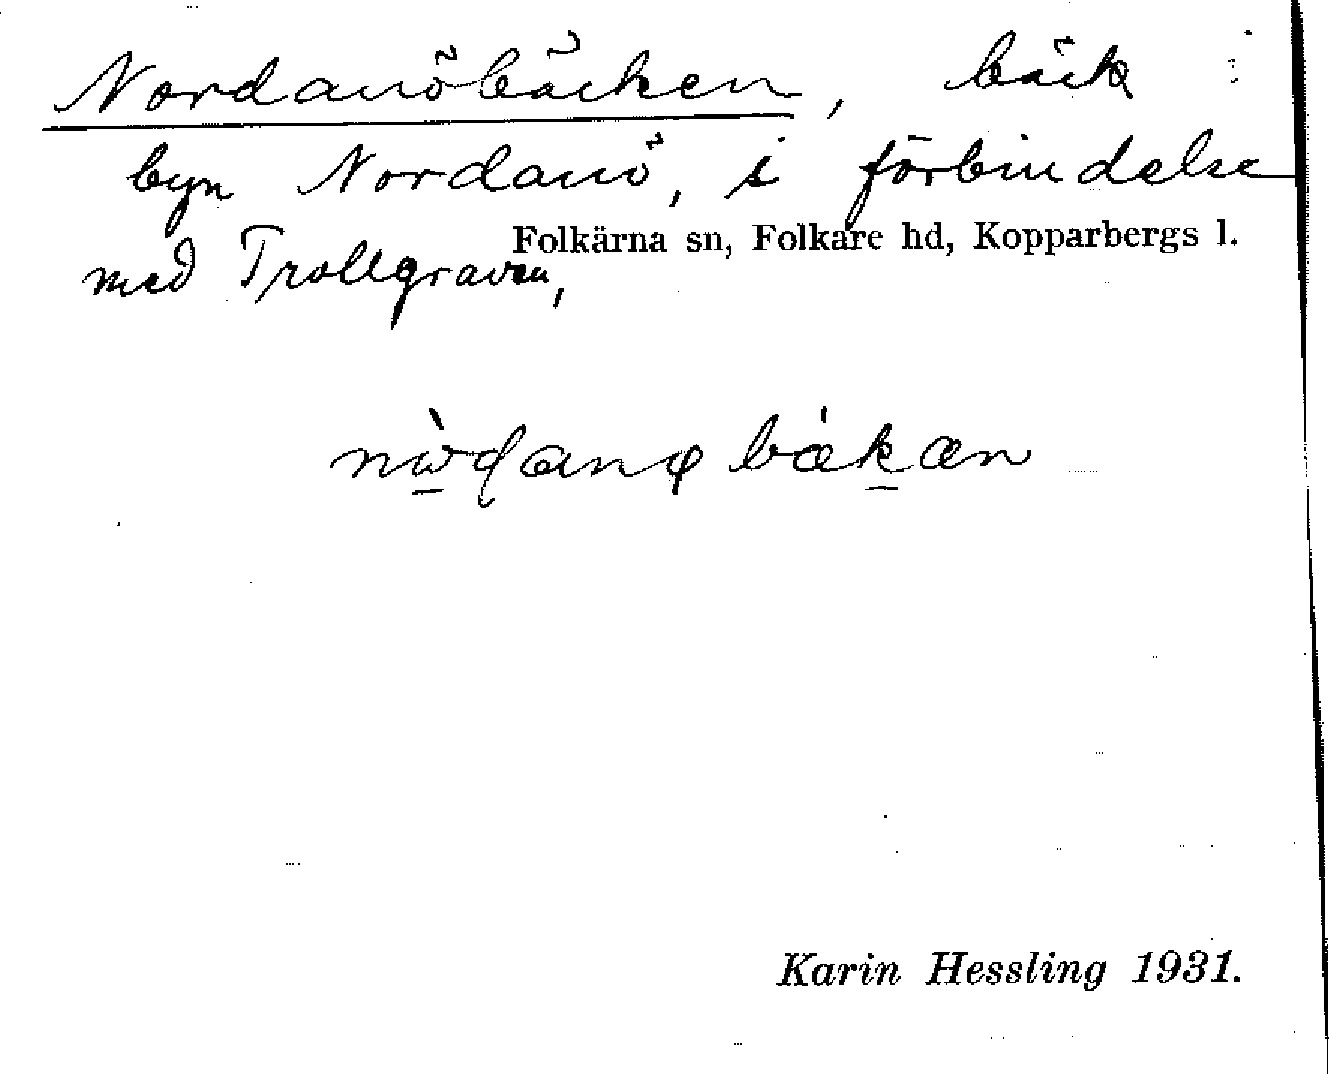 Nordanöbäcken, bäck i
byn Nordanö, i förbindelse
Folkärna sn, Folkare hd, Kopparbergs l.
med Trollgraven,
Karin Hessling 1931.